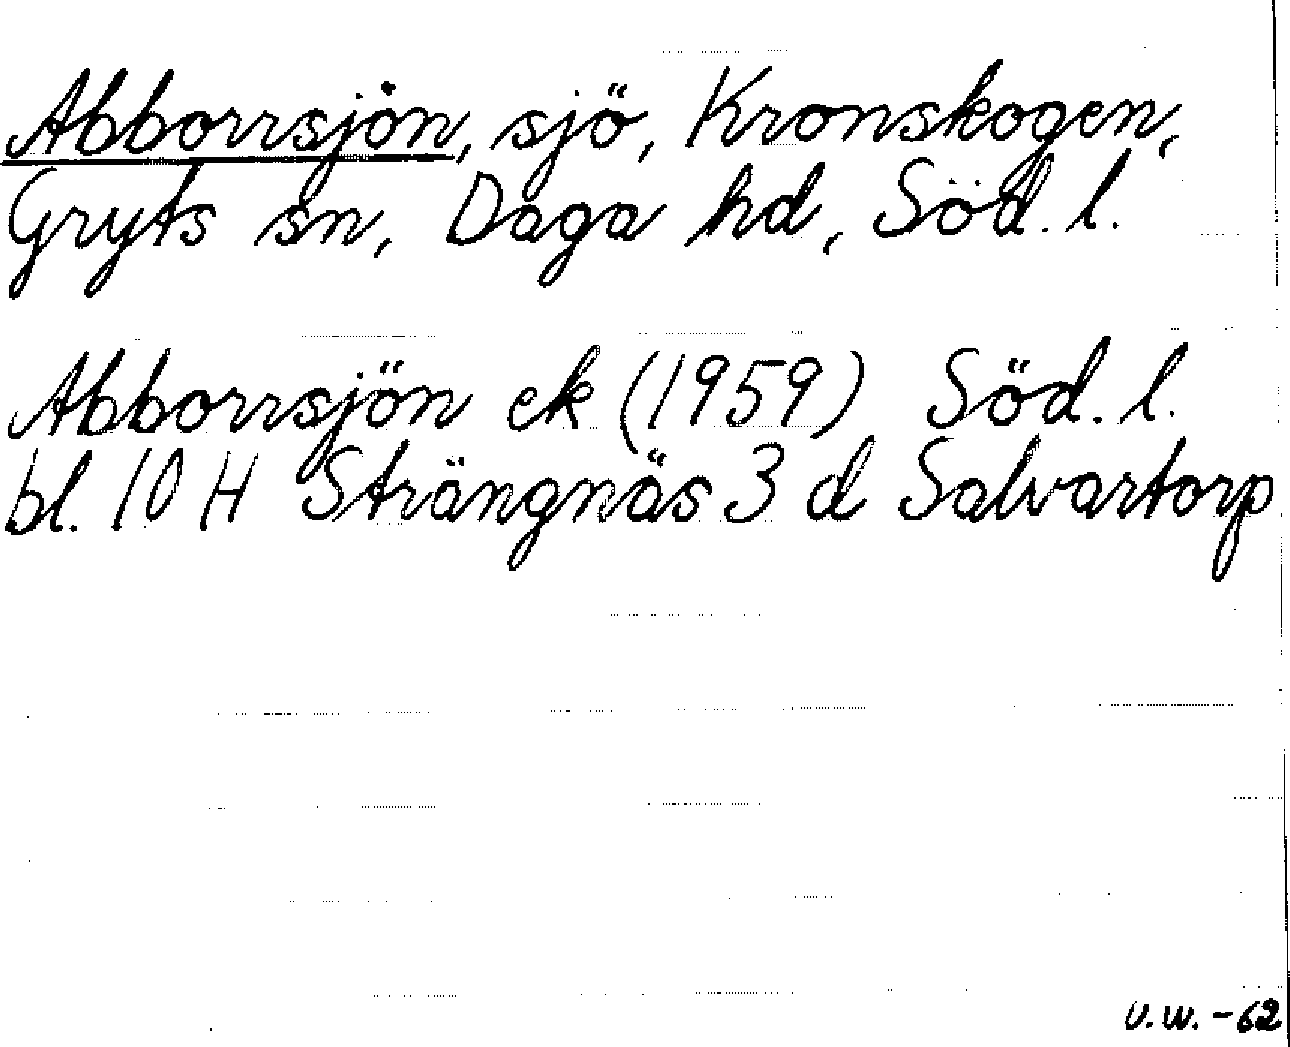 Abborrsjön, sjö, Kronskogen,
Gryts sn, Daga hd, Söd. l.
Abborrsjön ek (1959) Söd. l.
bl. 10 H Strängnäs 3 d Salvartorp
U.W. -62